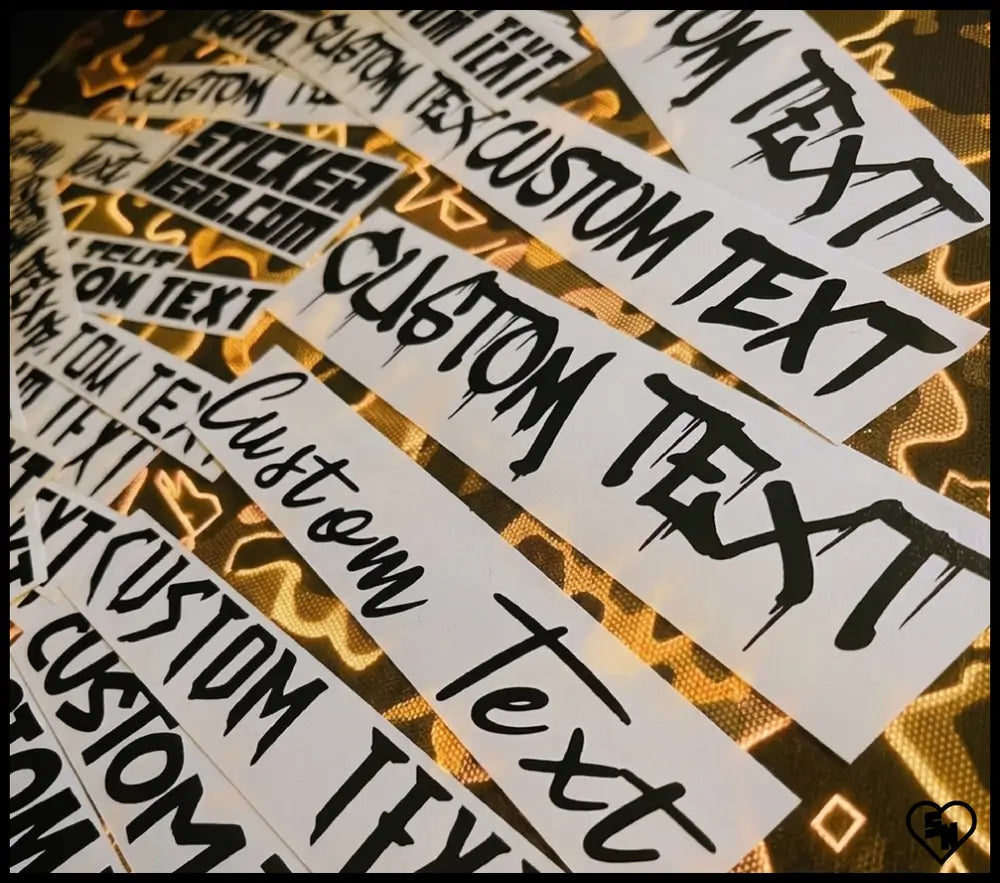 CUSTOM
CUSTOM TEXT
TEXT
CUSTOM
OM TEXT
Text
STICKER
NERD.COM
CUSTOM TEXT
OM TEXT
CUSTOM TEXT
TOM TEX
Custom Text
CUSTOM TEX
CUSTOM
TOM
SN